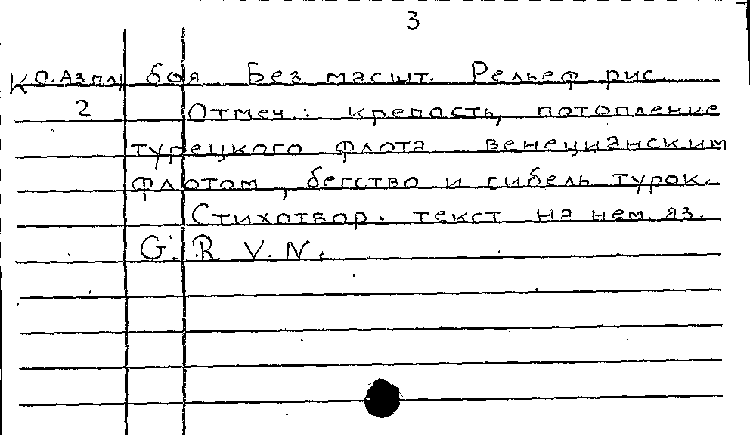 3
К О.Аз.пл. боя. Без масшт. Рельеф рис.
2 Отмеч.: крепость, потопление
турецкого флота венецианским
флотом, бегство и гибель турок.
Стихотвор. текст на нем. яз.
G. R. V. N.